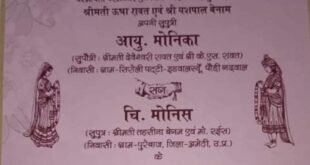 श्रीमती ऊषा रावत एवं श्री यशपाल बेनाम
अपनी सुपुत्री
आयु. मोनिका
(सुपौत्री: श्रीमती देवेश्वरी रावत एवं श्री के.एस. रावत)
(निवासी: ग्राम-सिरोली पट्टी-इडवालस्यूँ, पौड़ी गढ़वाल)
संग
चि. मोनिस
(सुपुत्र: श्रीमती तहसीना बेगम एवं मो. रईस)
(निवासी: ग्राम-पूरेबाज, जिला-अमेठी, उ.प्र.)
के